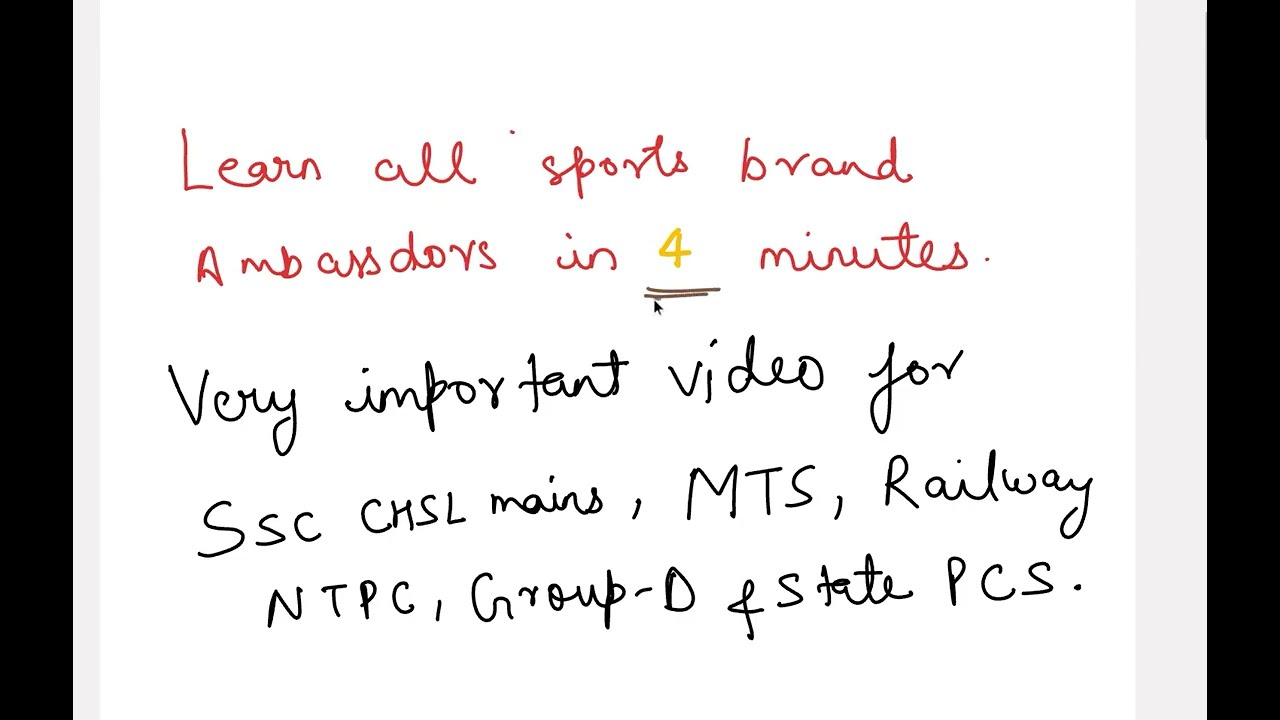 Learn all sports brand
Ambassdors in 4 minutes.
Very important video for
SSC CHSL mains, MTS, Railway
NTPC, Group-D & State PCS.